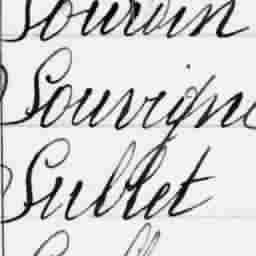 Sourdin
Souvigne
Sublet